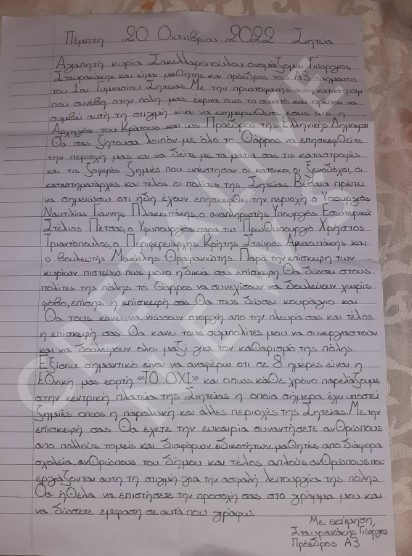 Πέμπτη 20 Οκτωβρίου 2022 Σητεία
Αγαπητή κυρία Σακελλαροπούλου ονομάζομαι Γιώργος
Σταυρακάκης και είμαι μαθητής και πρόεδρος του Α3 τμήματος
του 1ου Γυμνασίου Σητείας. Με την πρωτοφανής αυτή καταστροφή
που συνέβη στην πόλη μας έκρινα απο το σωστό και πρέπον να
συμβεί αυτή τη στιγμή είναι να ενημερωθείτε εσείς ως η
Αρχηγός του Κράτους και ως Πρόεδρος της Ελληνικής Δημοκρατίας
Θα σας ζητουσα λοιπόν με όλο το θάρρος να επισκεφθείτε
την περιοχή μας και να δείτε με τα ματια σας τις καταστροφές
και τις ζοφερές ζημιές που υπέστησαν οι κατοικοι, οι ξενοδόχοι, οι
καταστηματάρχες και τέλος οι πολίτες της Σητείας. Βέβαια πρέπει
να σημειώσω οτι ήδη έχουν επισκεφθεί την περιοχή ο Υπουργός
Ναυτιλίας Γιάννης Πλακιωτάκης, ο αναπληρωτής Υπουργός Εσωτερικών
Στέλιος Πέτσας, ο Υφυπουργός παρα τω Πρωθυπουργώ Χρήστος
Τριαντόπουλος, ο Περιφερειάρχης Κρήτης Σταύρος Αρναουτάκης και
ο βουλευτής Μανώλης Θραψανιώτης. Παρα την επίσκεψη των
κυρίων πιστεύω πως μόνο η δικιά σας επίσκεψη θα δώσει στους
πολίτες της πόλης το θάρρος να συνεχίσουν να δουλεύουν χωρίς
φόβο, επίσης η επίσκεψή σας θα τους δώσει κουράγιο και
θα τους κάνει να νιώσουν στοργή απο την πλευρα σας και τέλος
η επίσκεψή σας θα κανει τους συμπολίτες μου να συνεργαστούν
και να δουλέψουν όλοι μαζί για τον καθαρισμό της πόλης.
Εξίσου σημαντικό είναι να αναφέρω οτι σε 8 ημέρες είναι η
Εθνική μας εορτή «ΤΟ ΟΧΙ» και οπως κάθε χρόνο παρελάζουμε
στην κεντρική πλατεία της Σητείας η οποία σήμερα έχει υποστεί
ζημιές οπως η παραλιακή και άλλες περιοχές της Σητείας. Με την
επίσκεψή σας θα έχετε την ευκαιρία συναντήσετε ανθρώπους
απο πολλούς τομείς και διαφόρων ειδικοτήτων, μαθητές απο διάφορα
σχολεία, ανθρώπους του δήμου και τέλος απλούς ανθρώπους που
εργάζονται αυτη τη στιγμή για την ασφαλή λειτουργία της πόλης.
Θα ήθελα να επιστήσετε την προσοχή σας στο γράμμα μου και
να δώσετε έμφαση σε αυτα που γράφω.
Με εκτίμηση,
Σταυρακάκης Γιώργος
Πρόεδρος Α3